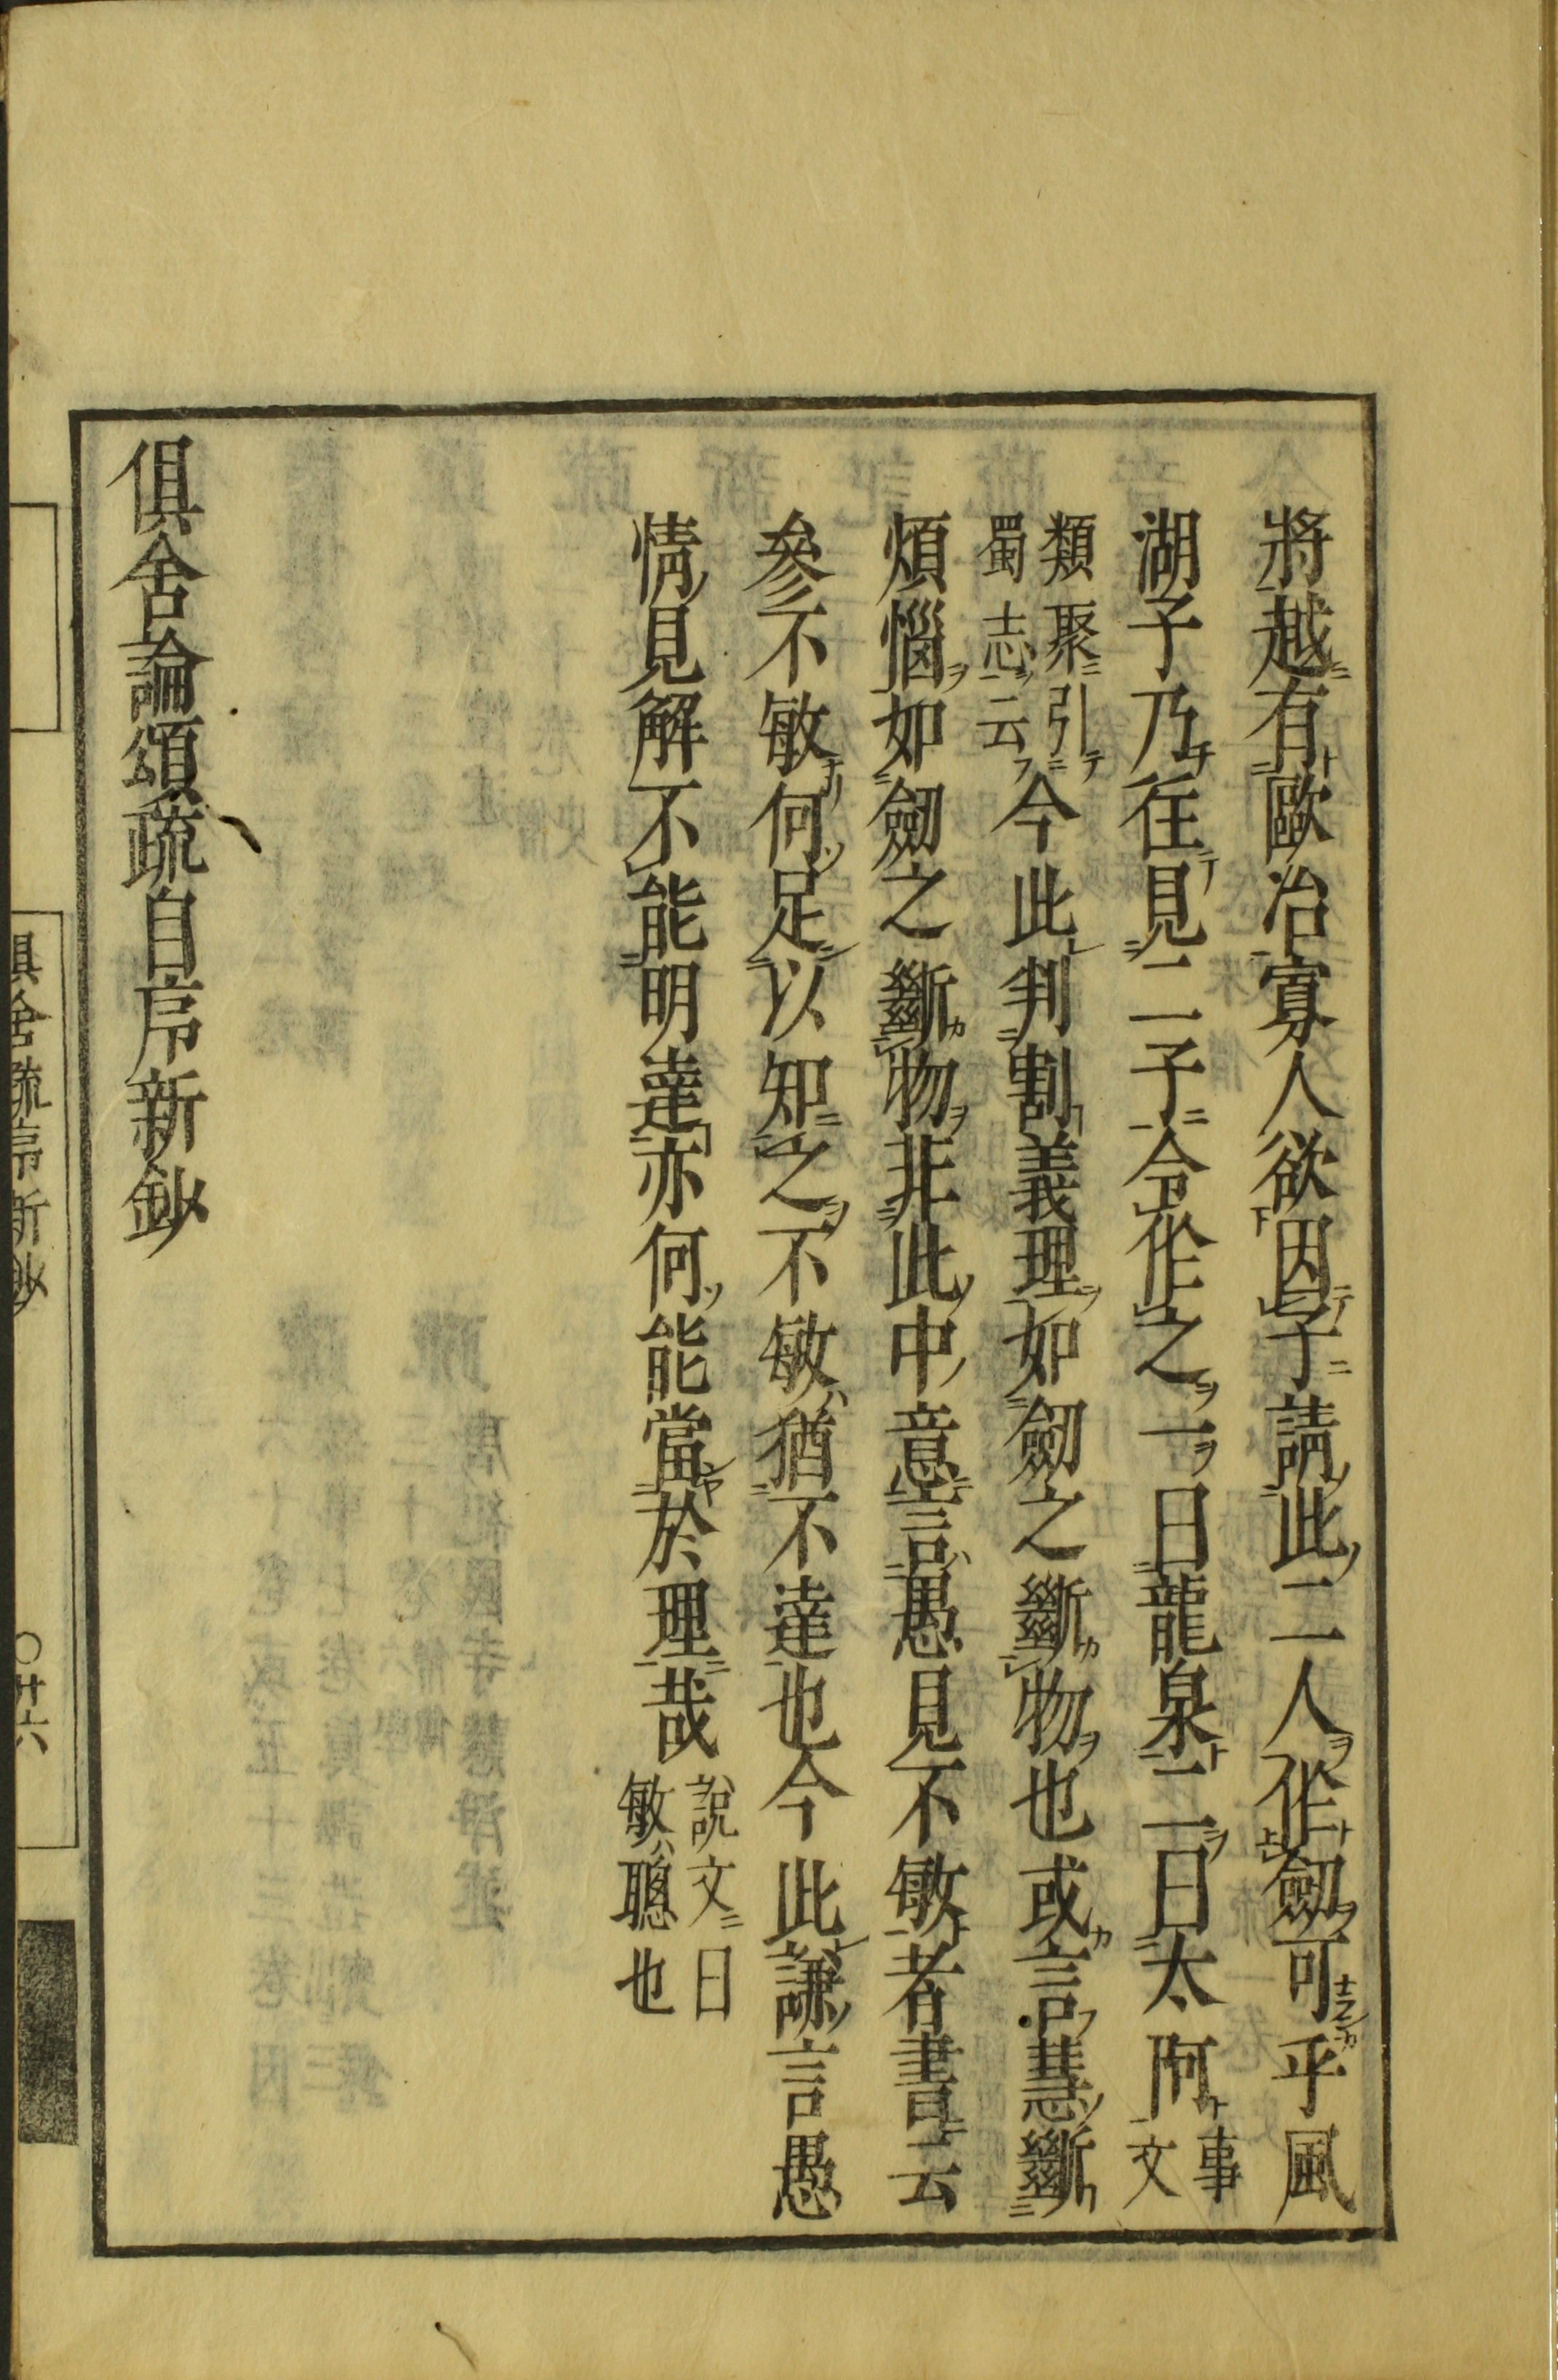 將越有歐冶寡人欲因子請此二人作劔可乎風
湖子乃往見二子令作之一曰龍泉二曰太阿事文
類聚引蜀志云今此判割義理如劔之斷物也或言慧斷
煩惱如劔之斷物非此中意言愚見不敏者書云
參不敏何足以知之不敏猶不達也今此謙言愚
情見解不能明達亦何能當於理哉說文曰敏聰也
俱舍論頌疏自序新鈔
俱舍疏序新鈔
〇廿六